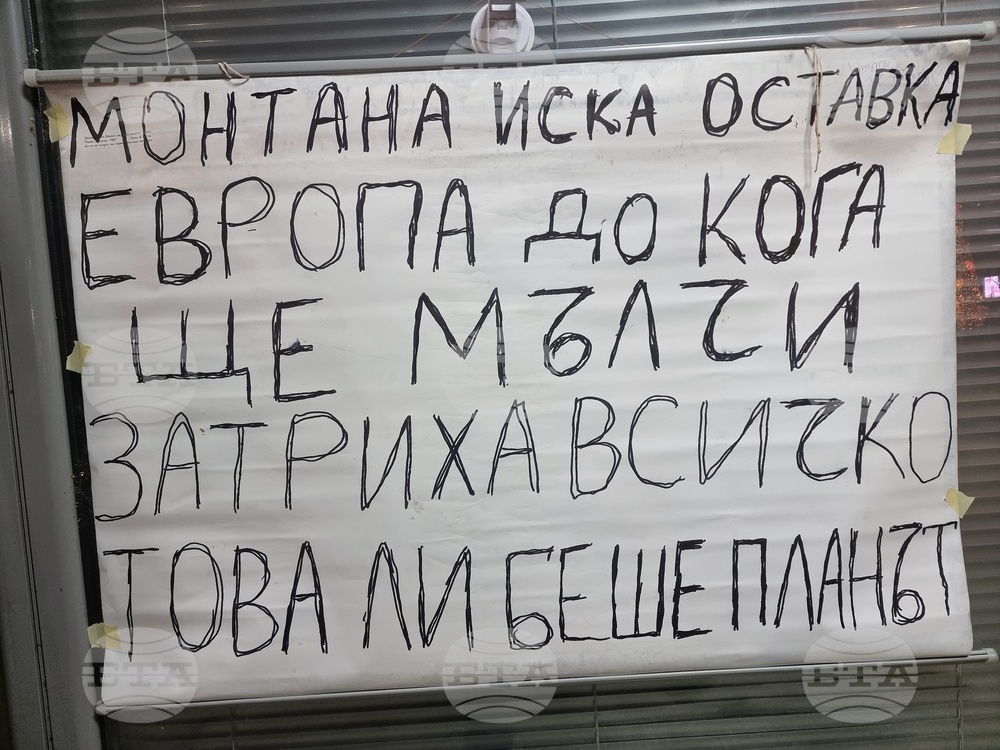 МОНТАНА ИСКА ОСТАВКА
ЕВРОПА ДО КОГА
ЩЕ МЪЛЧИ
ЗАТРИХА ВСИЧКО
ТОВА ЛИ БЕШЕ ПЛАНЪТ
БТА
БТА
БТА
БТА
БТА
БТА